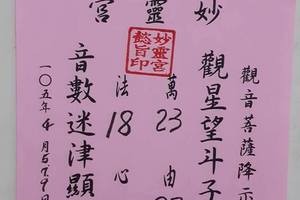 妙靈宮
觀音菩薩降示
觀星望斗子
萬23由
法18心
音數迷津顯
一〇五年4月5.7.9日
妙靈宮
懿旨印